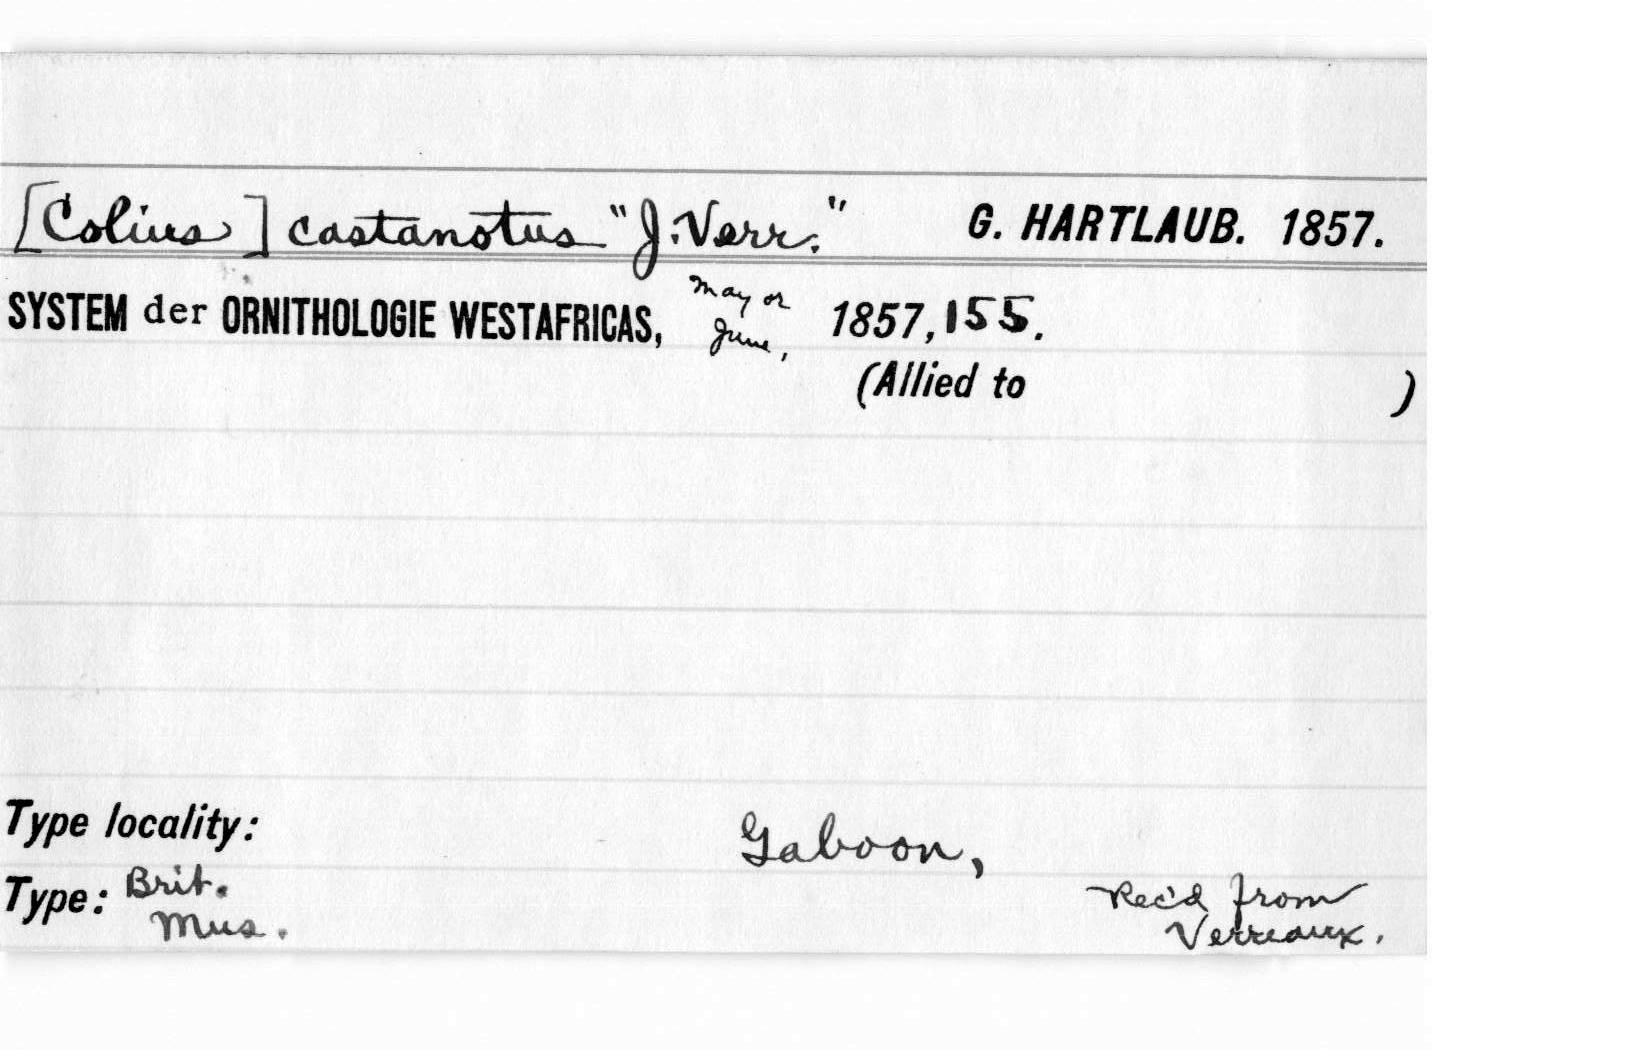 [Colius] castanotus "J. Verr." G. HARTLAUB. 1857.
SYSTEM der ORNITHOLOGIE WESTAFRICAS, May or June, 1857, 155.
(Allied to )
Type locality: Gaboon,
Type: Brit. Mus. Rec'd from Verreaux.